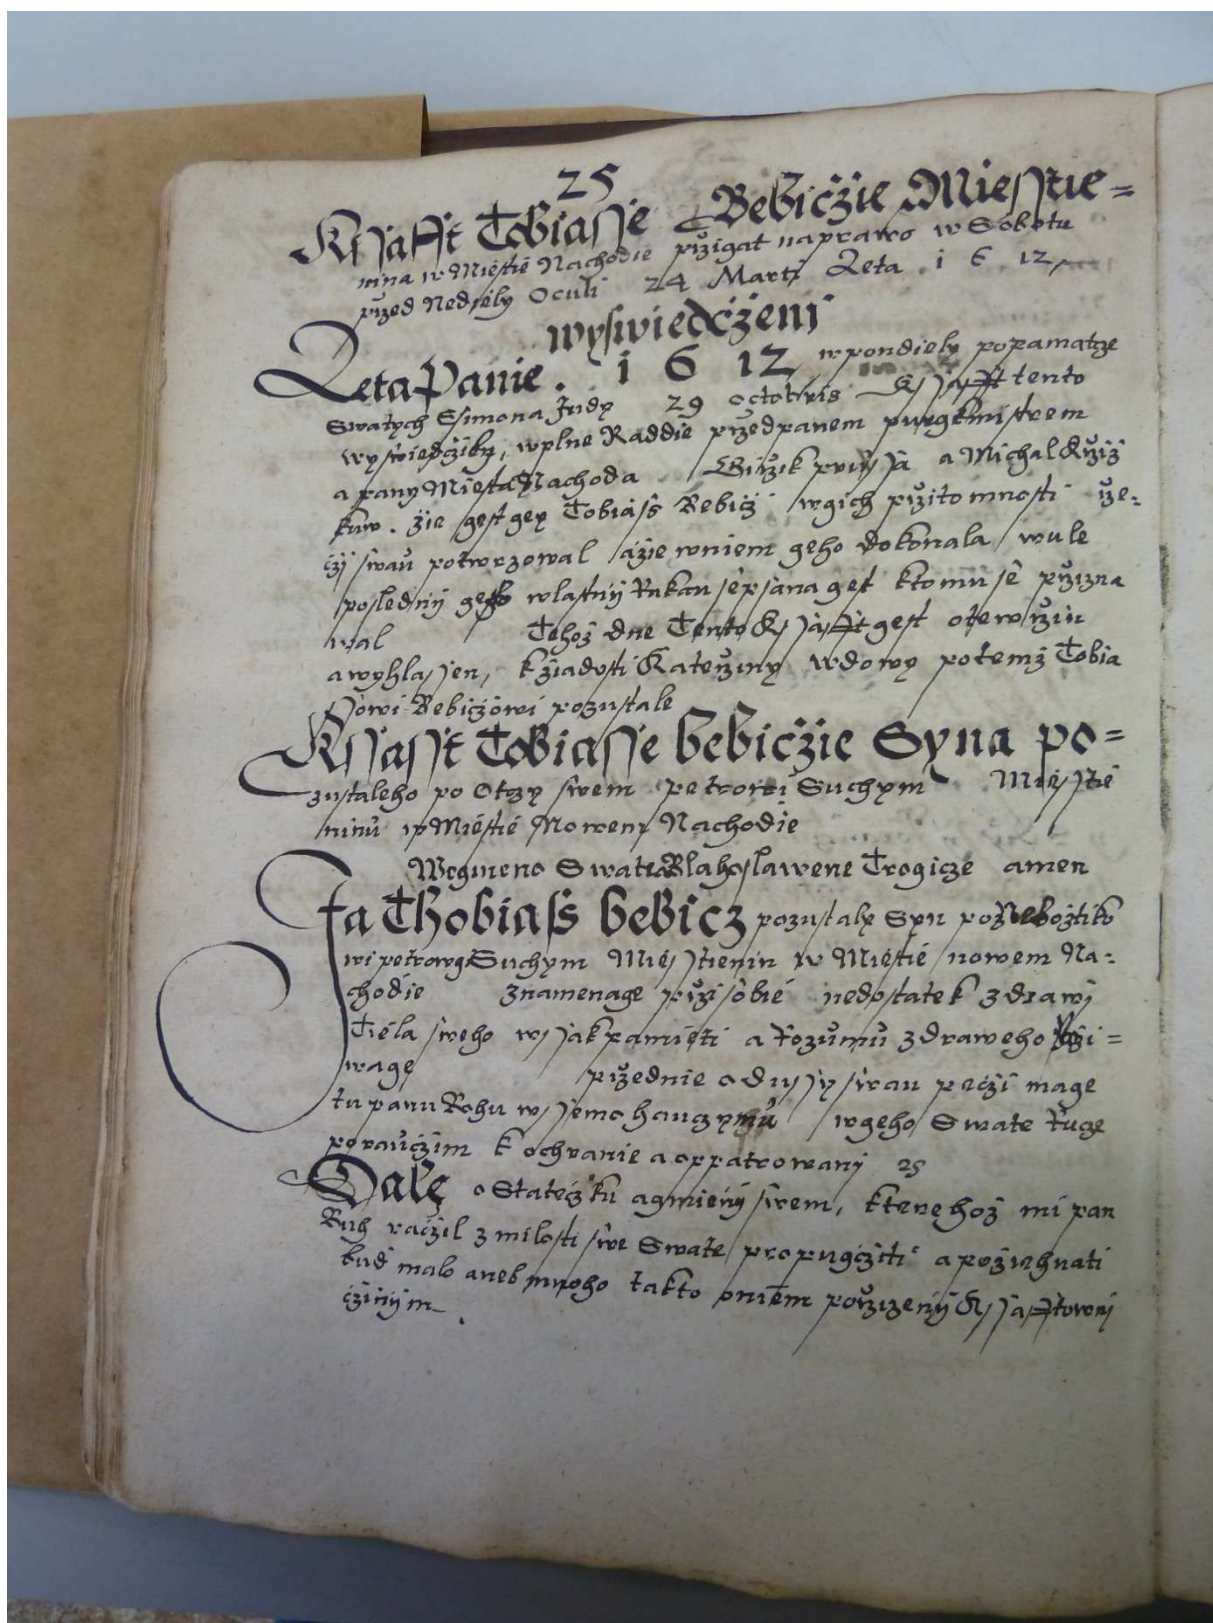 25
Kssafft Tobiasse Bebičzie Miesstie=
nina w Miestie Nachodie przigat naprawo w Sobotu
przed Nediely Oculi 24 Martj Leta i 6 12
wyswiedčženj
Leta Panie. i 6 12 w pondiely popamatcze
Swatych Ssimona Judy 29 octobris Kssafft tento
wyswiedčzily, wplne Raddie przedpanem purgkmistrem
a pany Miesta Nachoda Girzik a Michal Krziž
kuw. žie gest gey Tobiáss Bebičz wgich przitomnosti rze=
čzj swau potwrzowal ažie wniem geho dokonala wule
poslednij geho wlastnij Rukau sepsana gest ktomu se przizna
wal Tehož dne Tento Kssafft gest otewrzin
a wyhlassen, kžiadosti Kateržiny wdowy potemž Tobia
ssowi Bebičzowi pozustale
Kssafft Tobiasse bebičzie Syna po=
zustaleho po Otczy swem petrowi Suchym Miesstie
ninu w Miestie Nowem Nachodie
Wegmeno Swate Blahoslawene Trogicze amen
Ja Thobiass bebicz pozustaly Syn po Nebožtiko
wi petrowi Suchym Miesstienin w Miestie nowem Na=
chodie znamenage przisobie nedostatek zdrawj
Tiela sweho wssak pamieti a rozumu zdraweho uži=
wage przednie o dussy swau pečzi mage
tu panu Bohu wssemohauczymu wgeho Swate rucze
poraučzim k ochranie a oppatrowanj 25
Daly o Statečzku a gmienij swem, kterehož mi pan
Buh račzil z milosti swe Swate propugčziti a požiehnati
bud malo aneb mnoho takto oniem porzizenij Kssafftownj
čžinijm